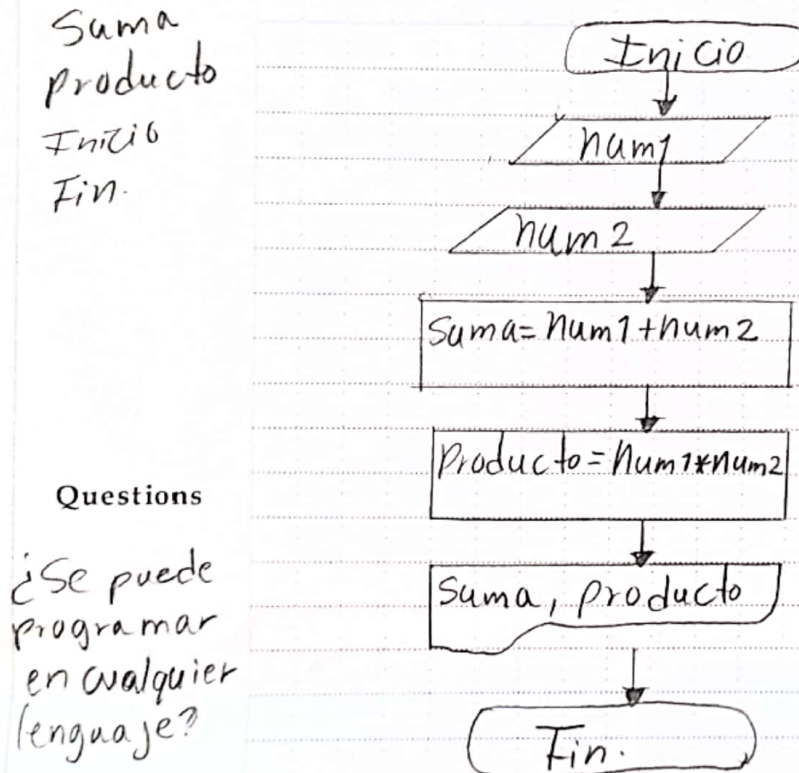 Suma
producto
Inicio
Fin.
Questions
¿Se puede
programar
en cualquier
lenguaje?
Inicio
num1
num2
Suma= num1+num2
Producto= num1*num2
Suma, producto
Fin.